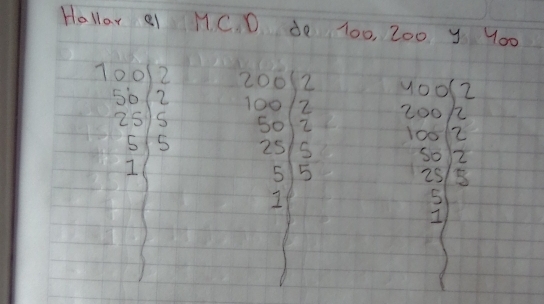 Hallar el M.C.D de 100, 200 y 400
100 2
50 2
25 5
5 5
1
200 2
100 2
50 2
25 5
5 5
1
400 2
200 2
100 2
50 2
25 5
5
1